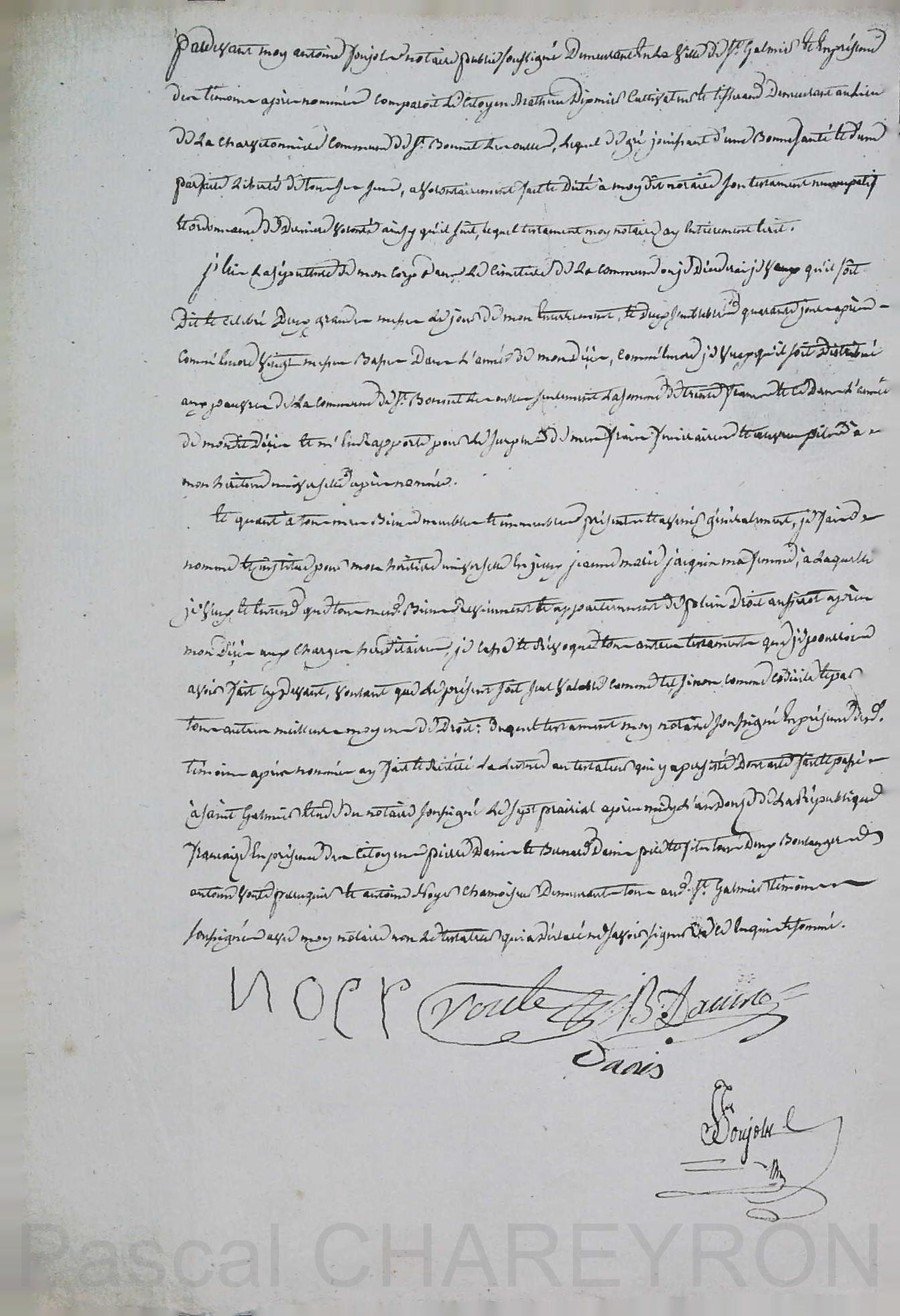 Pardevant moy antoine Poujol notaire public soussigné Demeurant En La Ville de St. Galmier Et En présence
des témoins aprés nommés comparoit Le Citoyen Mathieu Cultivateur Et tisserand Demeurant au Lieu
de La Commune de St. Bonnet Les oulles, Lequel de gré jouissant d'une Bonne santé Et d'une
parfaite Liberté de tous ses sens, a volontairement fait Et Dicté a moy dit notaire son testament nuncupatif
Et ordonnance de Derniere volonté ainsy qu'il suit, lequel testament moy notaire ay Entierement Ecrit.
j'Elis La sépulture de mon corps dans Le Cimetiere de La commune ou je Décederai je veux qu'il soit
Dit Et celebré Deux grandes messes Le jour de mon Enterrement, Et deux semblables quarante jours aprés
Comme Encore vingt messes Basses Dans L'année de mon décés, comme Encore je veux qu'il soit Distribué
aux pauvres de La commune de St. Bonnet Les oulles seulement La somme de trente francs Et ce Dans L'année
de mon dit décés Et m'En rapporte pour Le surplus de mes frais funeraires Et œuvres pies a
mon heritiere universelle aprés nommée.
Et quant a tous mes Biens meubles Et immeubles présents Et avenir généralement, je fais
nomme Et institue pour mon heritiere universelle jeanne marie jacquin ma femme, a Laquelle
je veux Et Entend que tous mesd. Biens reviennent Et appartiennent de plein Droit aussitot aprés
mon Décés aux charges héréditaires, je casse Et Révoque tous autres testaments que je pourrois
avoir fait cy devant, voulant que Le présent soit seul valable comme tel sinon comme codicile Et par
tous autres meilleurs moyens de Droit: Duquel testament moy notaire soussigné En présence desd.
témoins aprés nommés ay fait Et Réiteré La Lecture au testateur qui y a persisté Dont acte fait Et passé
à saint Galmier Etude du notaire soussigné Le sept prairial aprés midy L'an de La République
française En présence des citoyens pierre Danis Et Benard Danis pere Et fils tous Deux Boulangers
antoine Voute perruquier Et antoine Noyer Chamoiseur Demeurants tous aud. St. Galmier témoins
soussignés avec moy notaire non Le testateur qui a déclaré ne savoir signer de ce Enquis Et sommé.
Voute B. Danis
Danis
Poujol